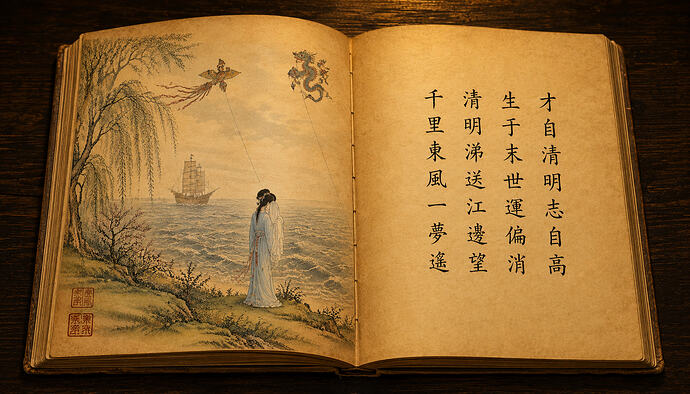 才自清明志自高
生于末世運偏消
清明涕送江邊望
千里東風一夢遙